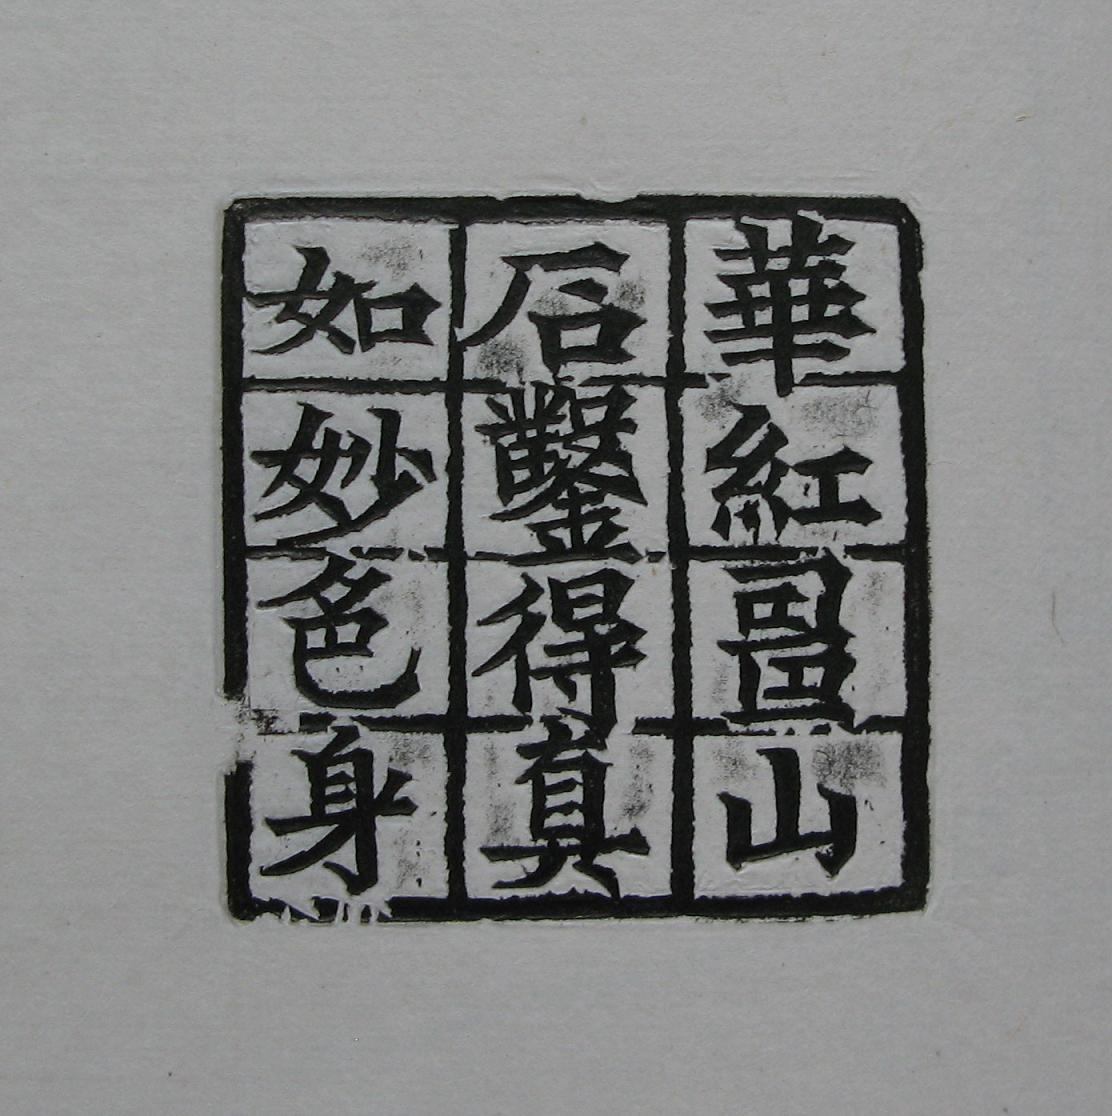 華紅山
后鑿得真
如妙色身